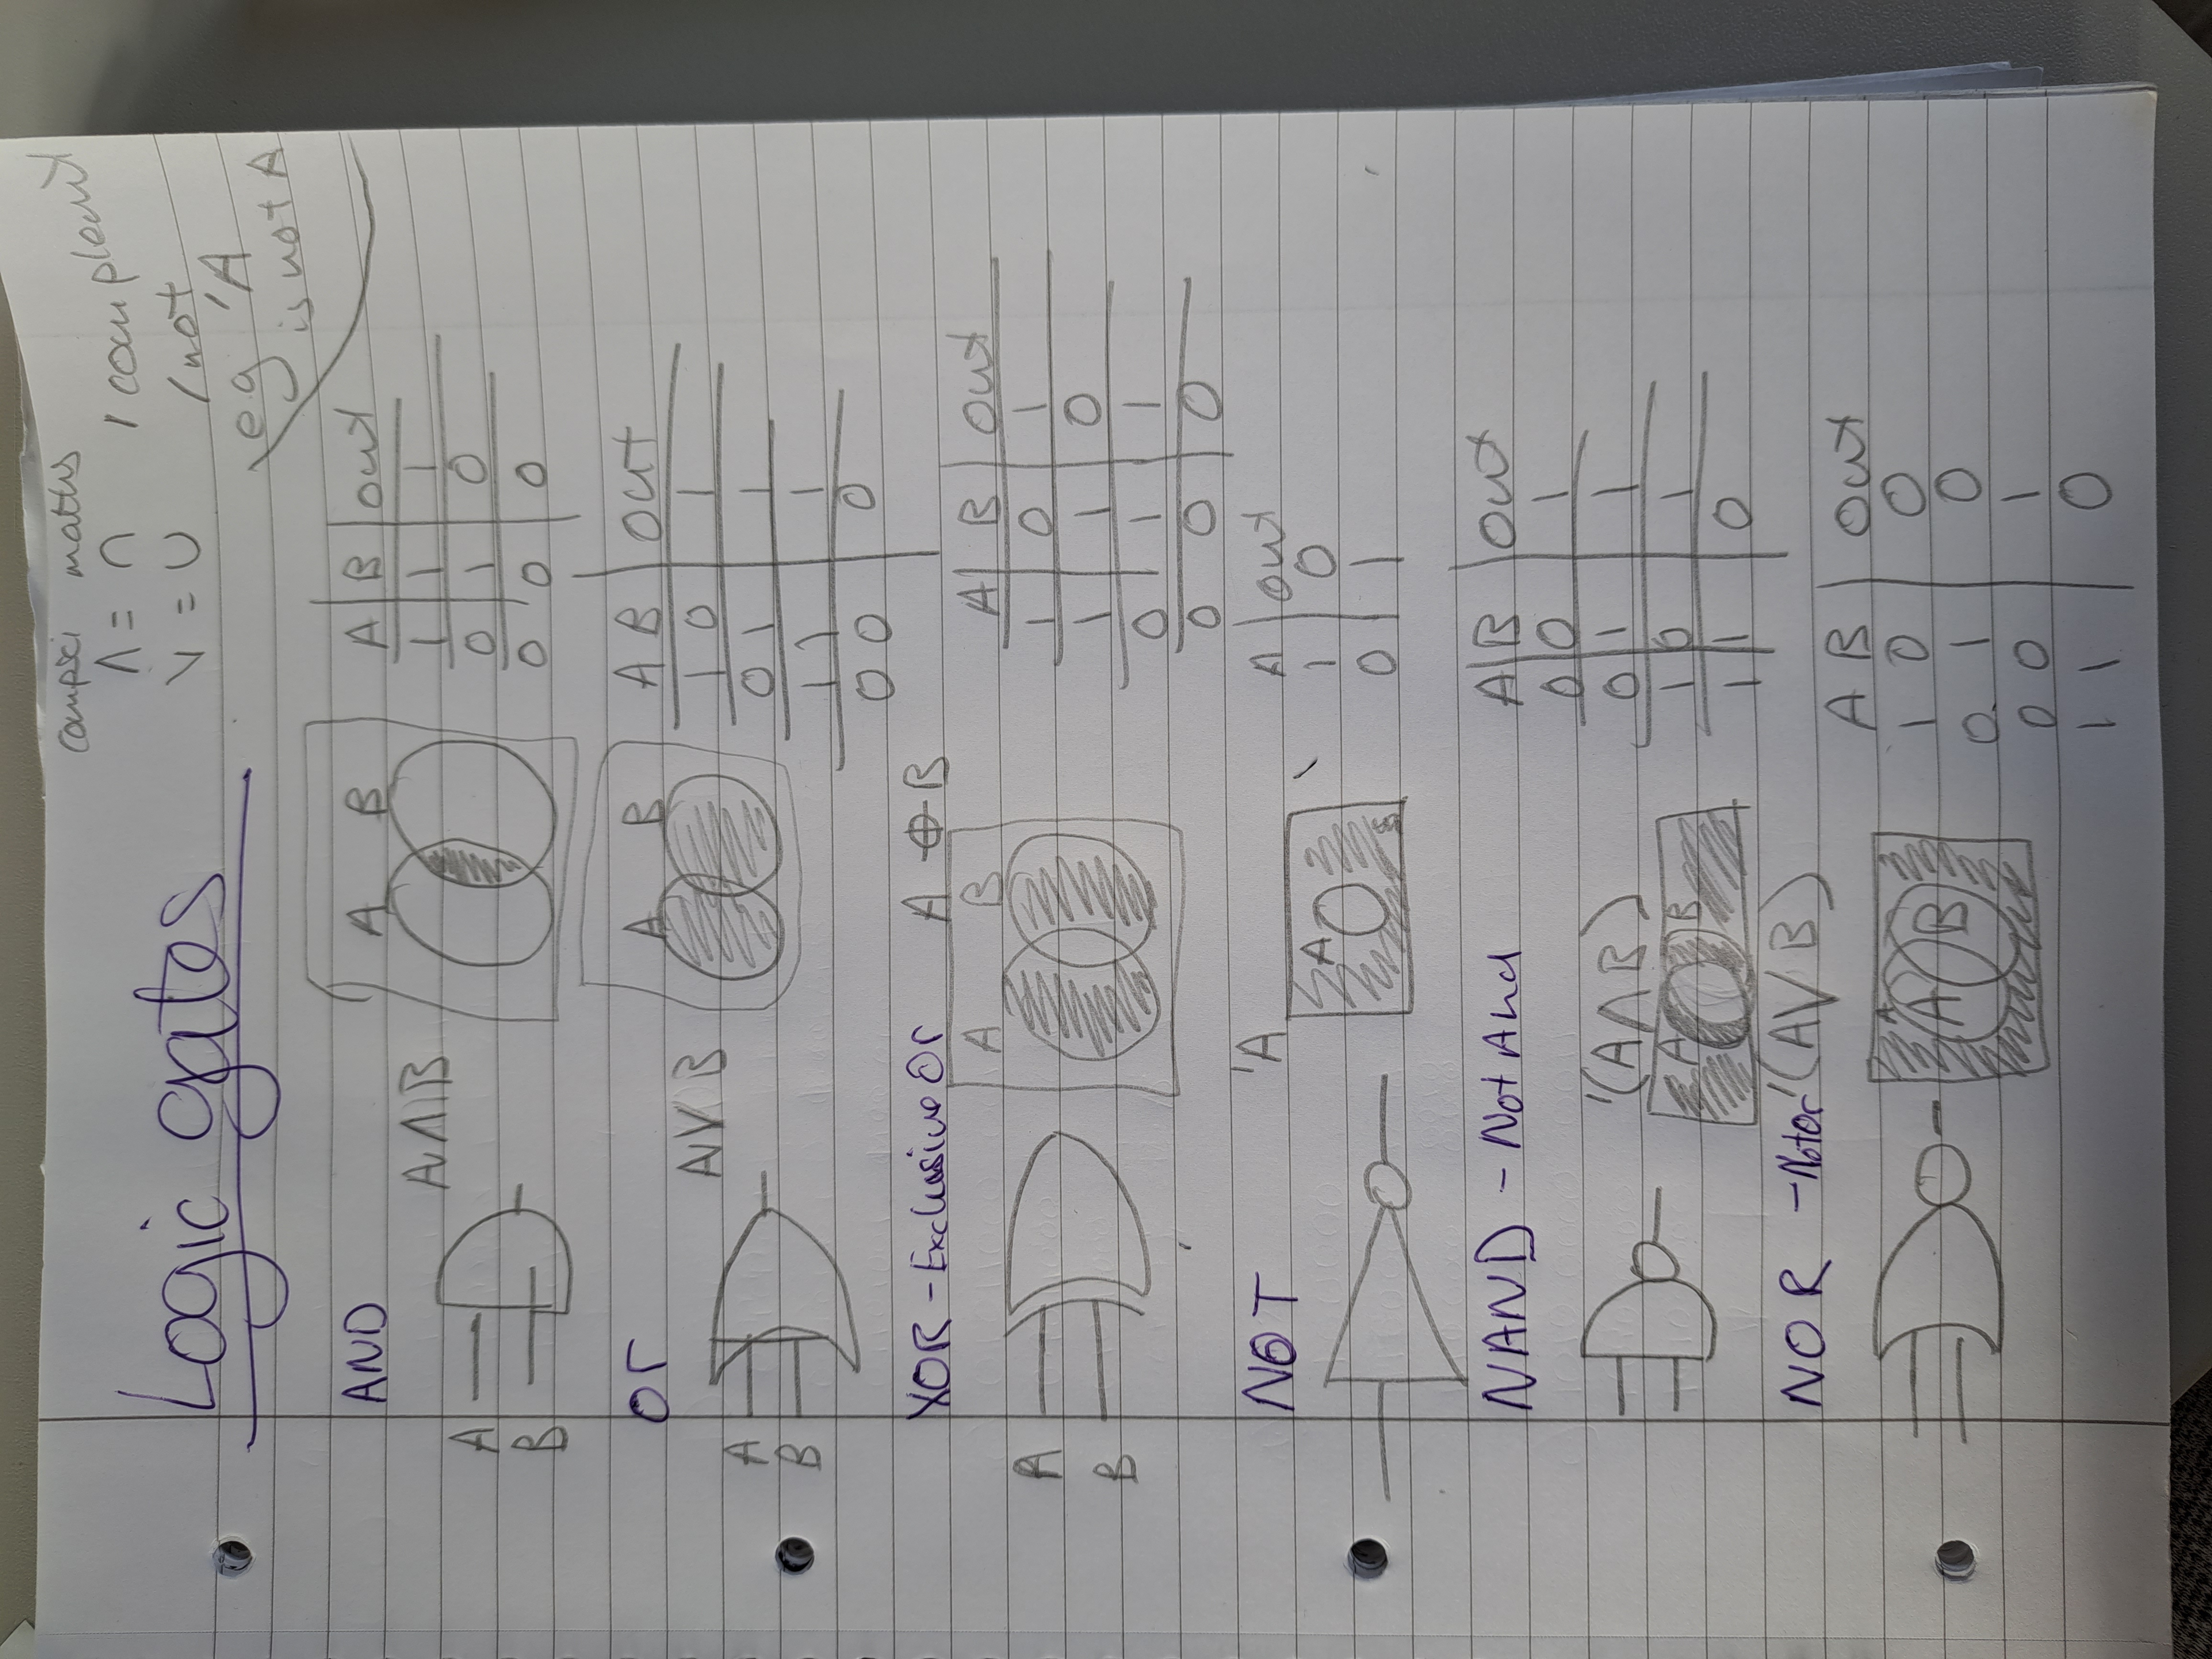 compsci maths
Λ = ∩
V = ∪
' complement
/ not
eg 'A
is not A
Logic gates
AND
A Λ B
A
B
A B
A B out
1 1 1
0 1 0
0 0 0
Or
A V B
A
B
A B
A B out
1 0 1
0 1 1
1 1 1
0 0 0
XOR - Exclusive Or A ⊕ B
A
B
A B
A B out
1 0 1
1 1 0
0 1 1
0 0 0
NOT 'A
A
A out
1 0
0 1
NAND - Not And
'(A Λ B)
A B
A B out
0 0 1
0 1 1
1 0 1
1 1 0
NOR - Notor '(A V B)
A
A B
A B out
1 0 0
0 1 0
0 0 1
1 1 0